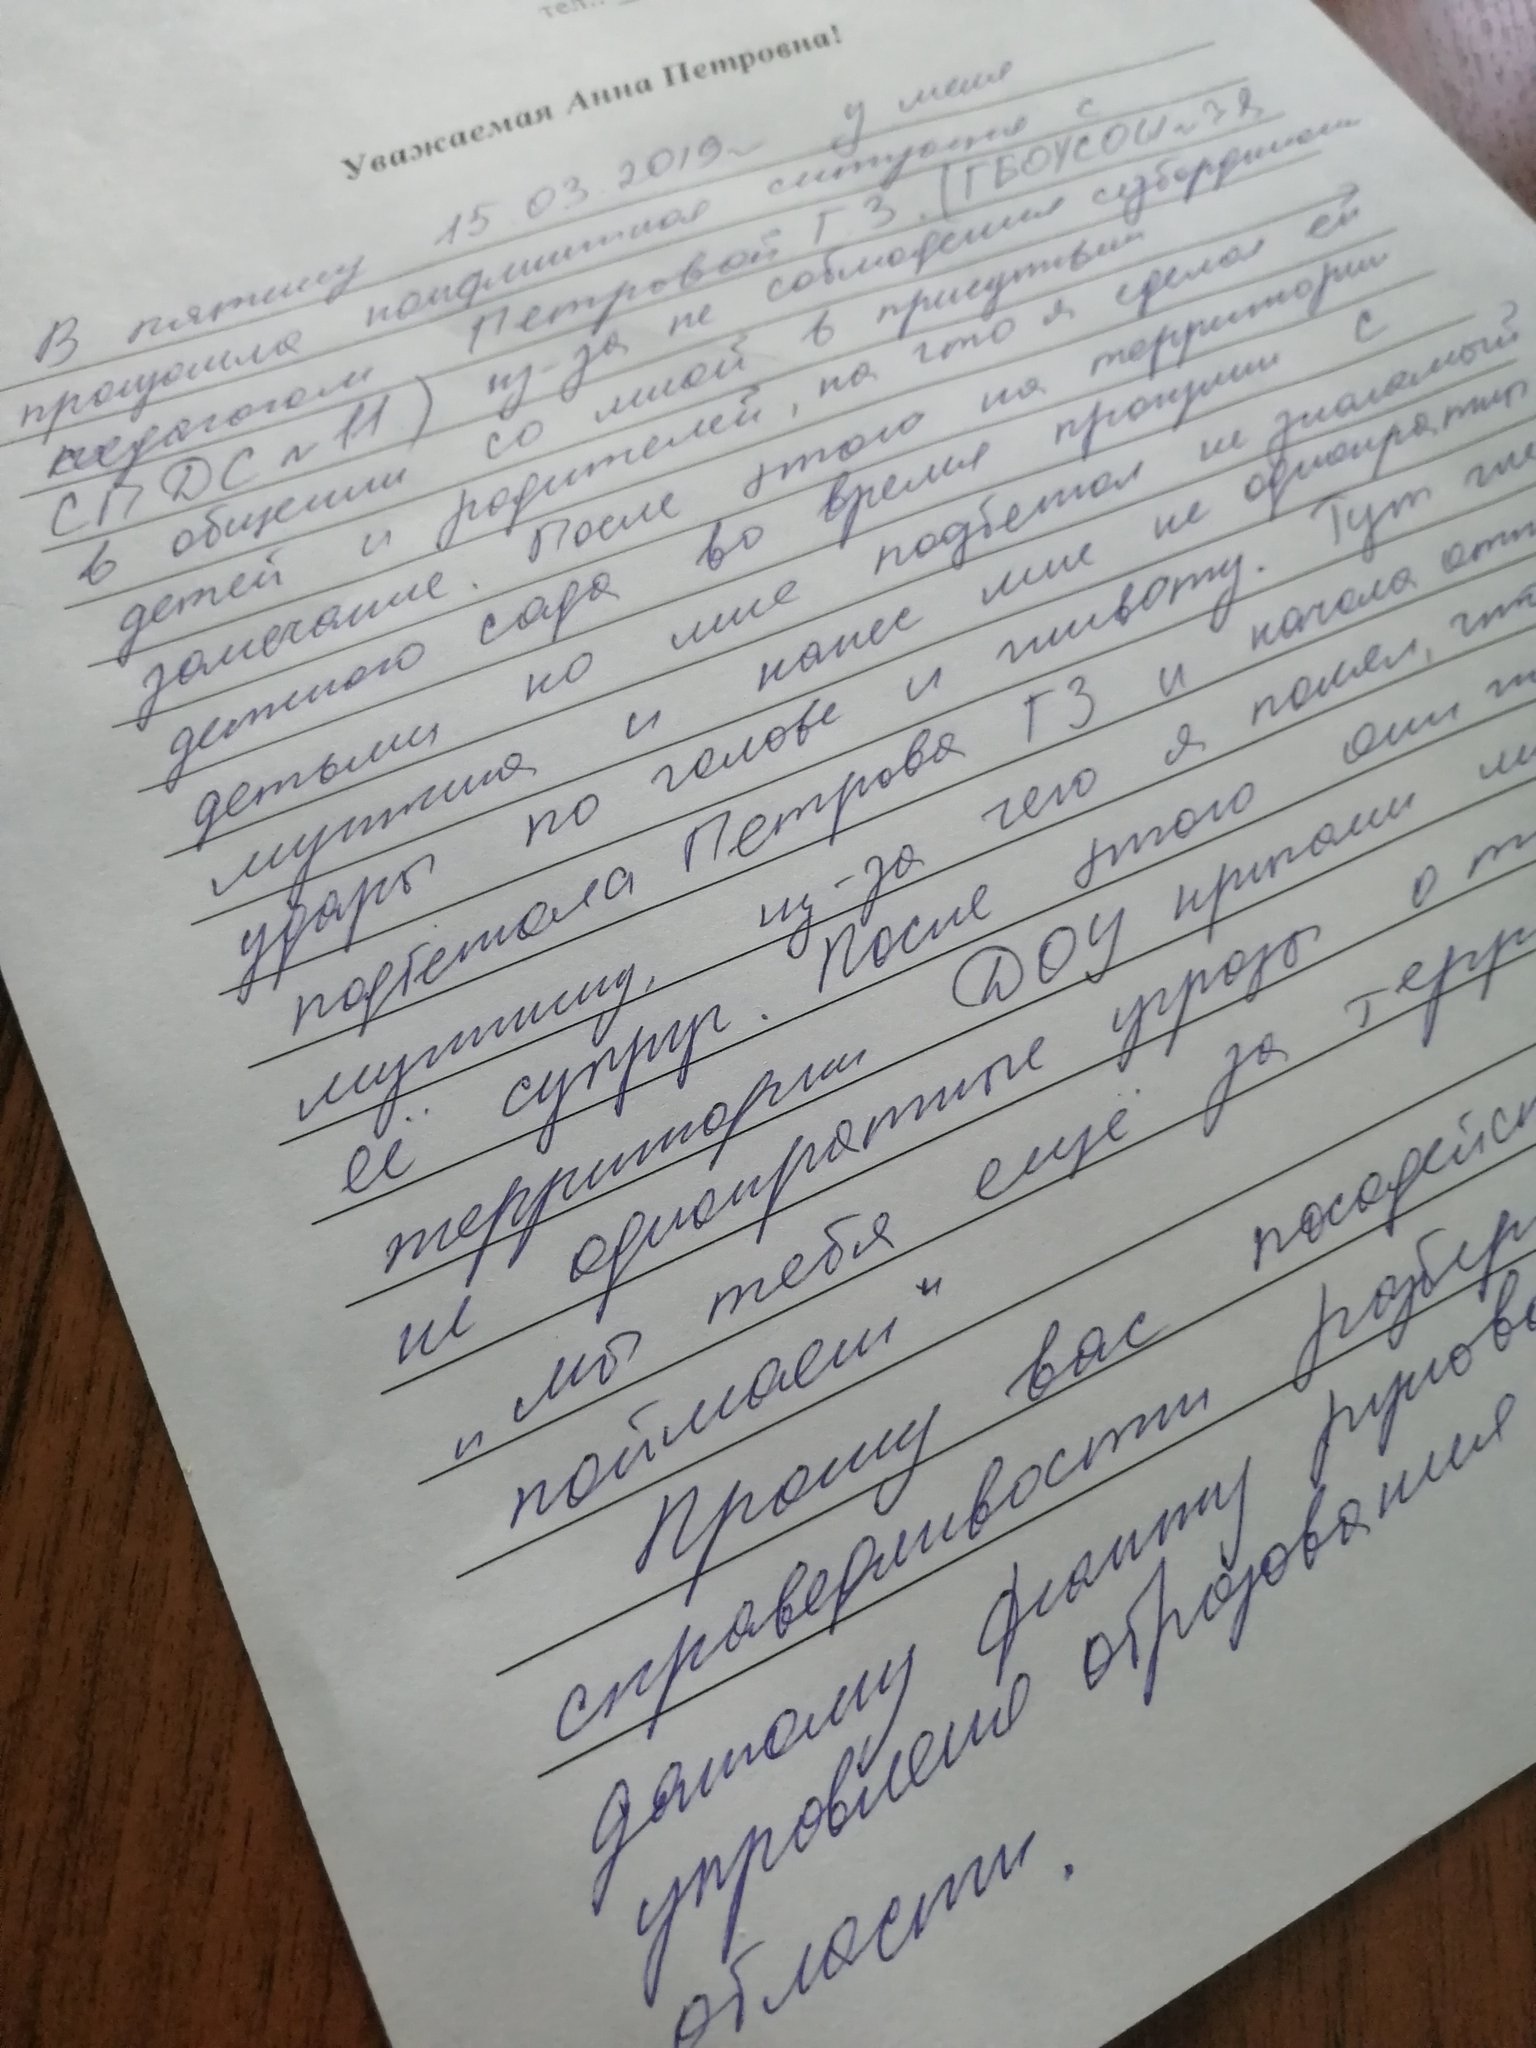 тел.:
Уважаемая Анна Петровна!
В пятницу 15.03.2019г у меня
произошла конфликтная ситуация с
педагогом Петровой Г.З. (ГБОУСОШ№7 &
СП ДС №11) из-за не соблюдения субординации
в общении со мной в присутствии
детей и родителей, на что я сделал ей
замечание. После этого на территории
детского сада во время прогулки с
детьми ко мне подбежал не знакомый
мужчина и нанес мне не однократные
удары по голове и животу. Тут же
подбежала Петрова ГЗ и начала отт
мужчину, из-за чего я понял, что
её супруг. После этого они
территории ДОУ кричали
не однократные угрозы о
"мы тебя ещё за терр
поймаем"
Прошу вас посодейст
справедливости разбер
данному факту руково
управление образования
области.